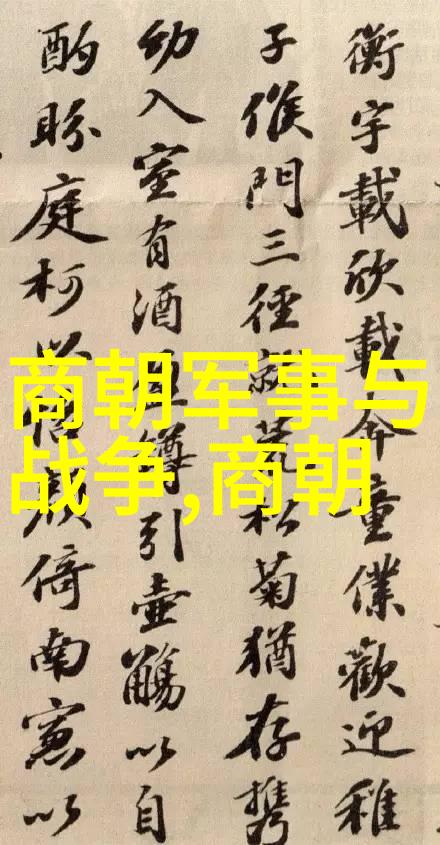 衡宇載欣載奔童僕歡迎稚
子候門三徑就荒松菊猶存携
幼入室有酒盈罇引壺觴以自
酌眄庭柯以怡顔倚南窓以
商朝军事与
战争,商朝